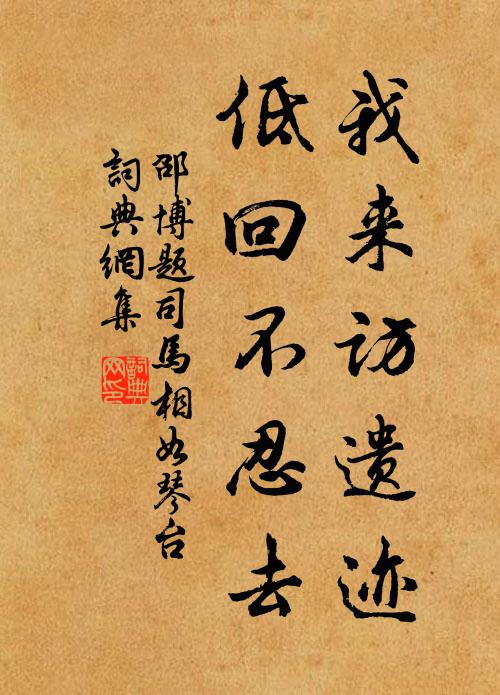 我来访遗迹
低回不忍去
邵博题司馬相如琴台
詞典網集
詞典
网印